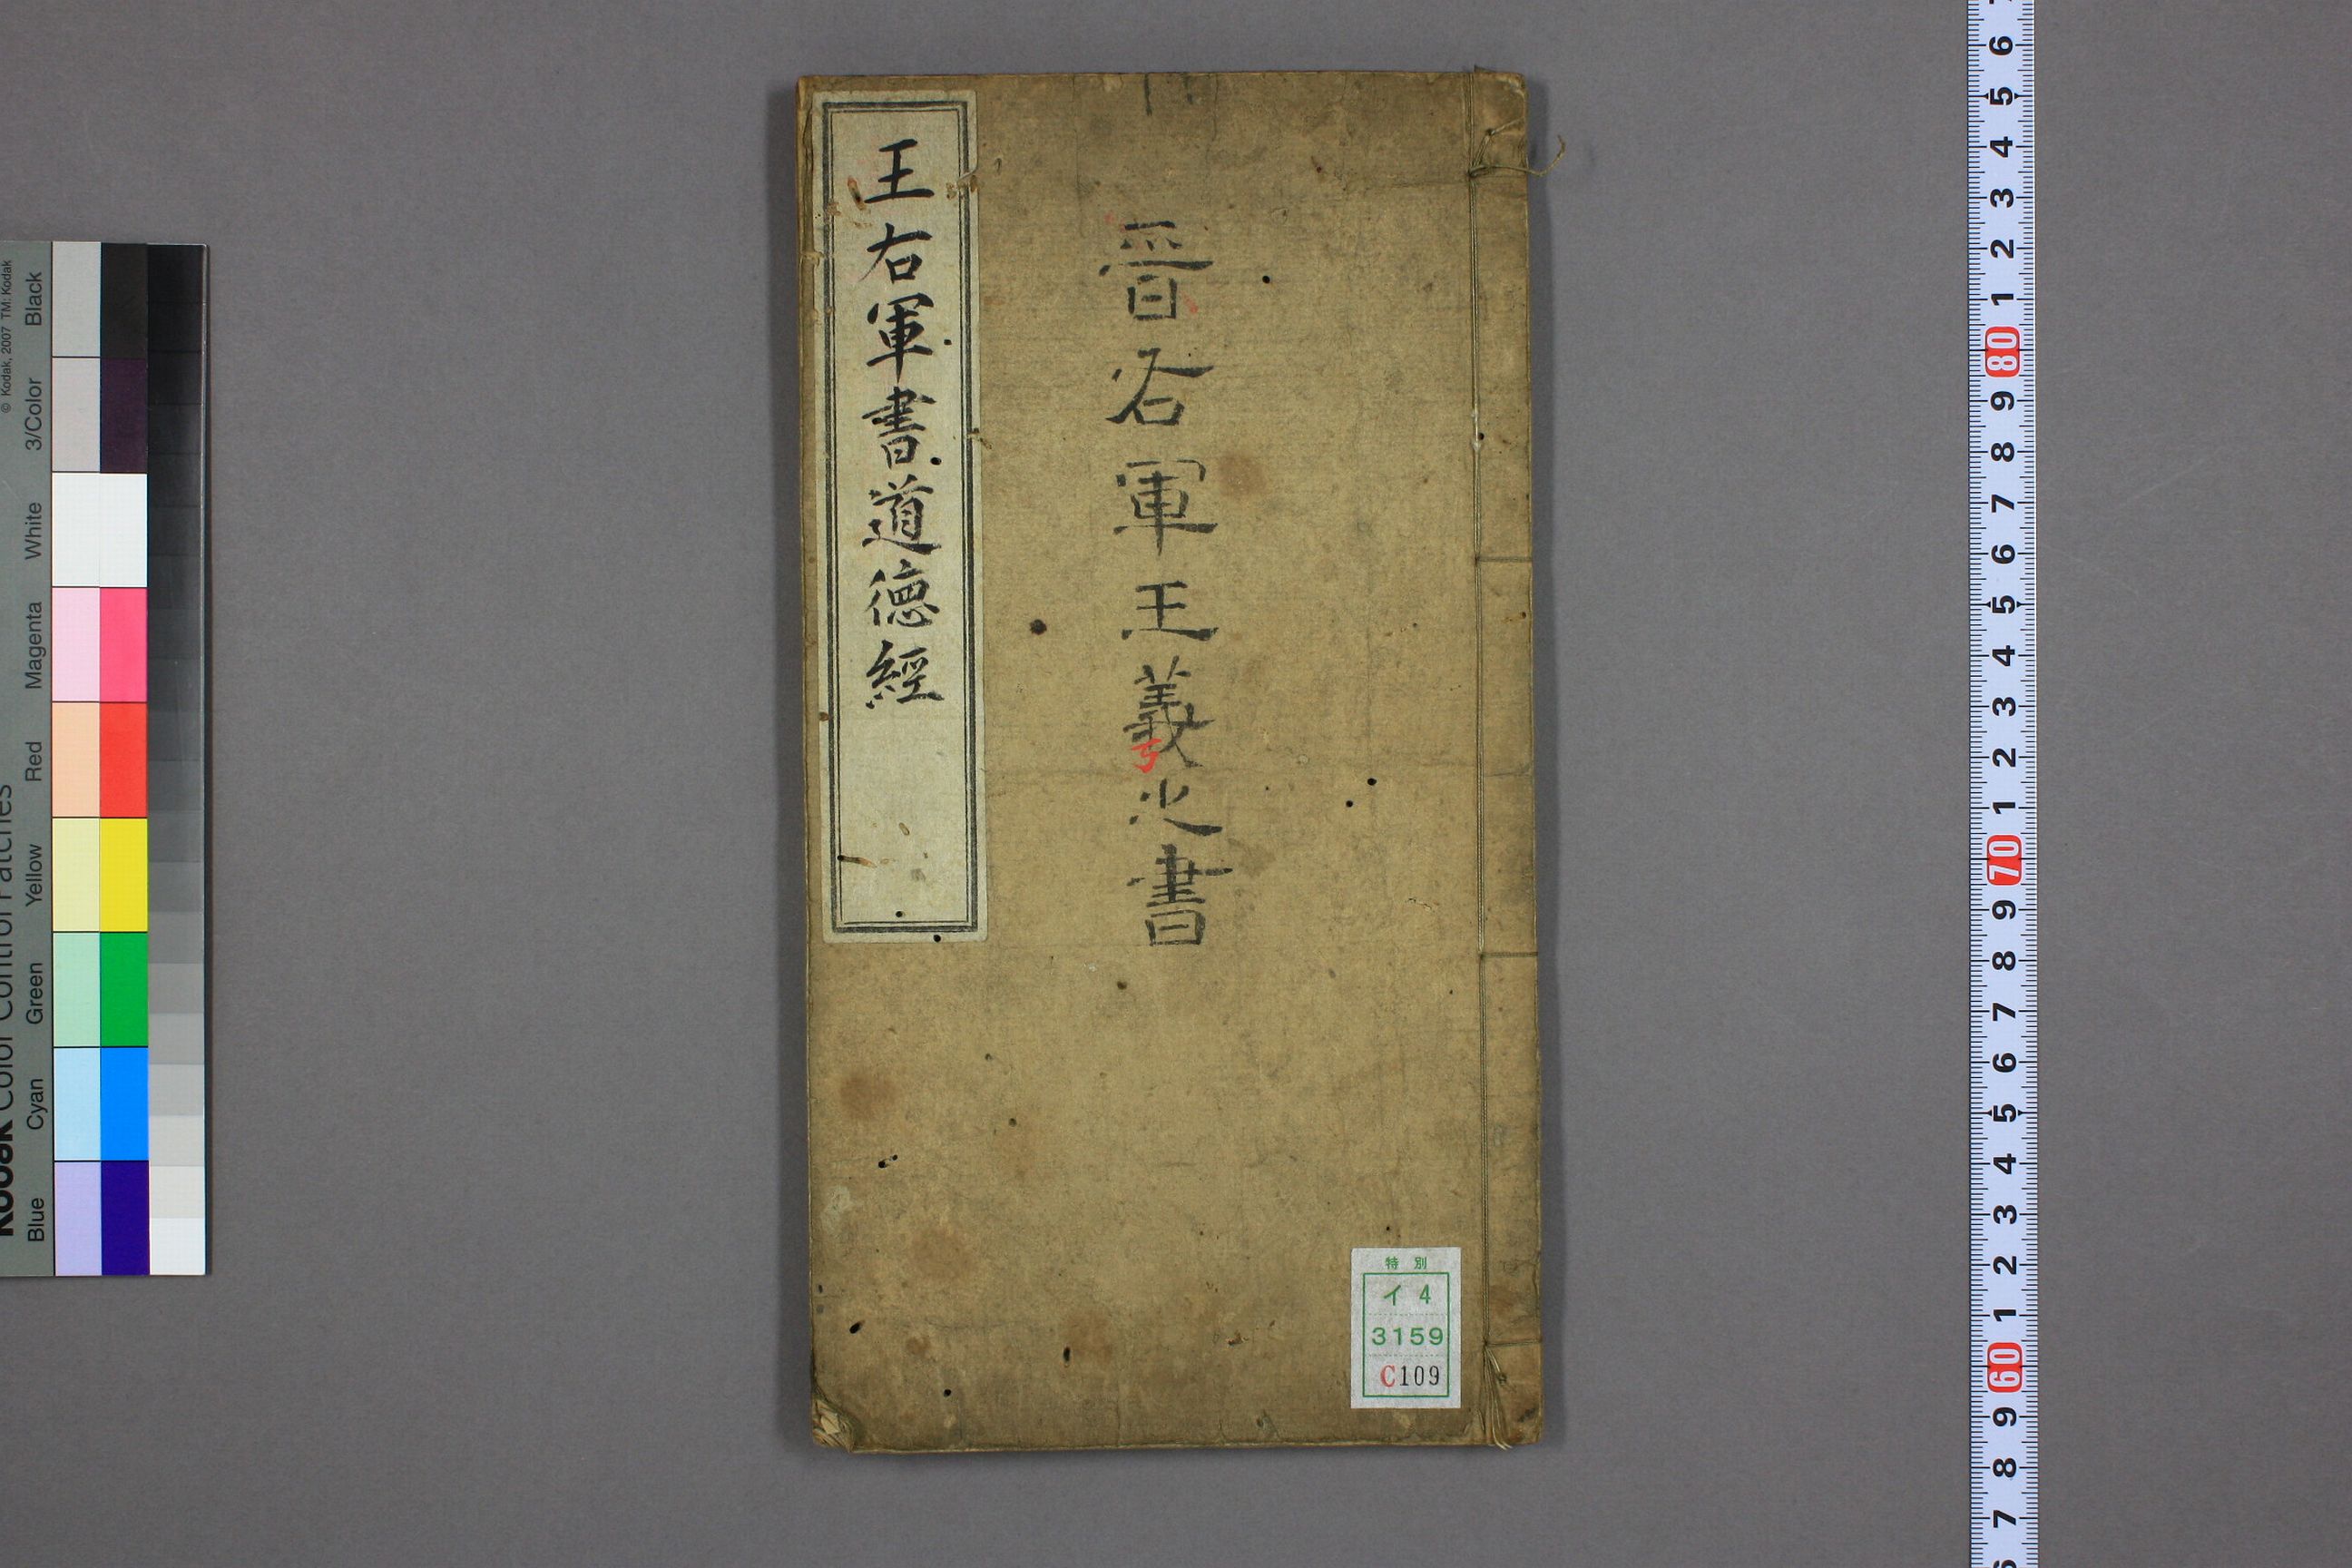 晉右軍王羲之書
王右軍書道德經
特別
イ 4
3159
C109
© Kodak, 2007 TM: Kodak
Kodak Color Control Patches
Blue Cyan Green Yellow Red Magenta White 3/Color Black
6
5
4
3
2
1
80
9
8
7
6
5
4
3
2
1
70
9
8
7
6
5
4
3
2
1
60
9
8
7